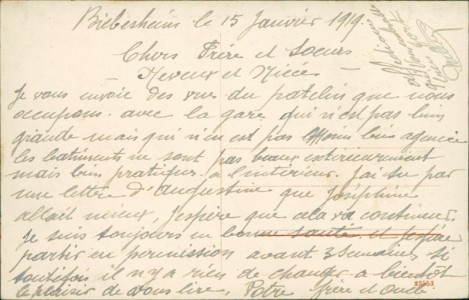 Biebesheim le 15 Janvier 1919.
Chers Frère et Soeurs
— Neveux et Nièces —
Je vous envoie des vues du patelin que nous
occupons. avec la gare qui n'est pas bien
grande mais qui n'en est pas moins bien agencée
les batiments ne sont pas beaux exterieurement
mais bien pratiques à l'interieur. J'ai su par
une lettre d'Augustine que Joséphine
allait mieux, j'espère que cela va continuer.
Je suis toujours en bonne santé et j'espère
partir en permission avant 3 semaines si
toutefois il n'y a rien de changer. a bientôt
le plaisir de vous lire, Votre frère et oncle